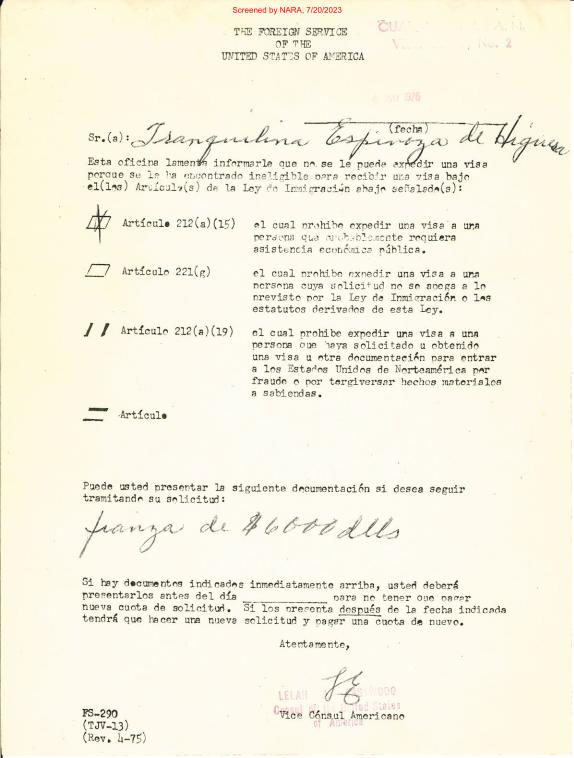 Screened by NARA, 7/20/2023
THE FOREIGN SERVICE
OF THE
UNITED STATES OF AMERICA
No. 2
1976
(fecha)
Sr.(a): Tranquilina Espinoza de Higuera
Esta oficina lamenta informarle que no se le puede expedir una visa
porque se le ha encontrado ineligible para recibir una visa bajo
el(los) Artículo(s) de la Ley de Inmigración abajo señalada(s):
Artículo 212(a)(15) el cual prohibe expedir una visa a una
persona que probablemente requiera
asistencia económica pública.
Artículo 221(g) el cual prohibe expedir una visa a una
persona cuya solicitud no se apega a lo
previsto por la Ley de Inmigración o los
estatutos derivados de esta Ley.
Artículo 212(a)(19) el cual prohibe expedir una visa a una
persona que haya solicitado u obtenido
una visa u otra documentación para entrar
a los Estados Unidos de Norteamérica por
fraude o por tergiversar hechos materiales
a sabiendas.
Artículo
Puede usted presentar la siguiente documentación si desea seguir
tramitando su solicitud:
fianza de $6000 dlls
Si hay documentos indicados inmediatamente arriba, usted deberá
presentarlos antes del día ____________ para no tener que pagar
nueva cuota de solicitud. Si los presenta después de la fecha indicada
tendrá que hacer una nueva solicitud y pagar una cuota de nuevo.
Atentamente,
LELAH
Consul of the United States
of America
Vice Cónsul Americano
FS-290
(TJV-13)
(Rev. 4-75)